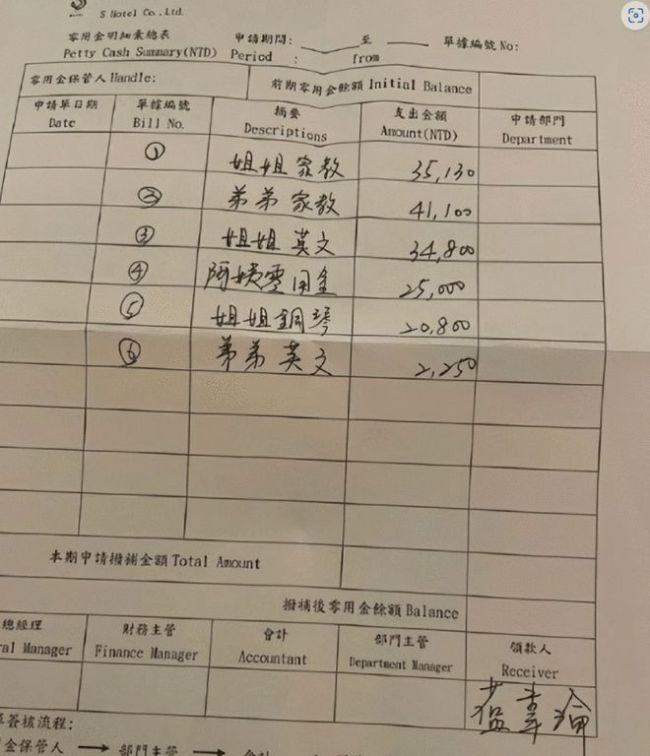 S Hotel Co., Ltd.
零用金明細彙總表 申請期間: 至 單據編號 No:
Petty Cash Summary(NTD) Period : from
零用金保管人 Handle: 前期零用金餘額 Initial Balance
申請單日期 單據編號 摘要 支出金額 申請部門
Date Bill No. Descriptions Amount(NTD) Department
① 姐姐家教 35,130
② 弟弟家教 41,100
③ 姐姐英文 34,800
④ 阿姨零用金 25,000
⑤ 姐姐鋼琴 20,800
⑥ 弟弟英文 2,250
本期申請撥補金額 Total Amount
撥補後零用金餘額 Balance
總經理 財務主管 會計 部門主管 領款人
ral Manager Finance Manager Accountant Department Manager Receiver
簽核流程:
金保管人 → 部門主管 → 會計